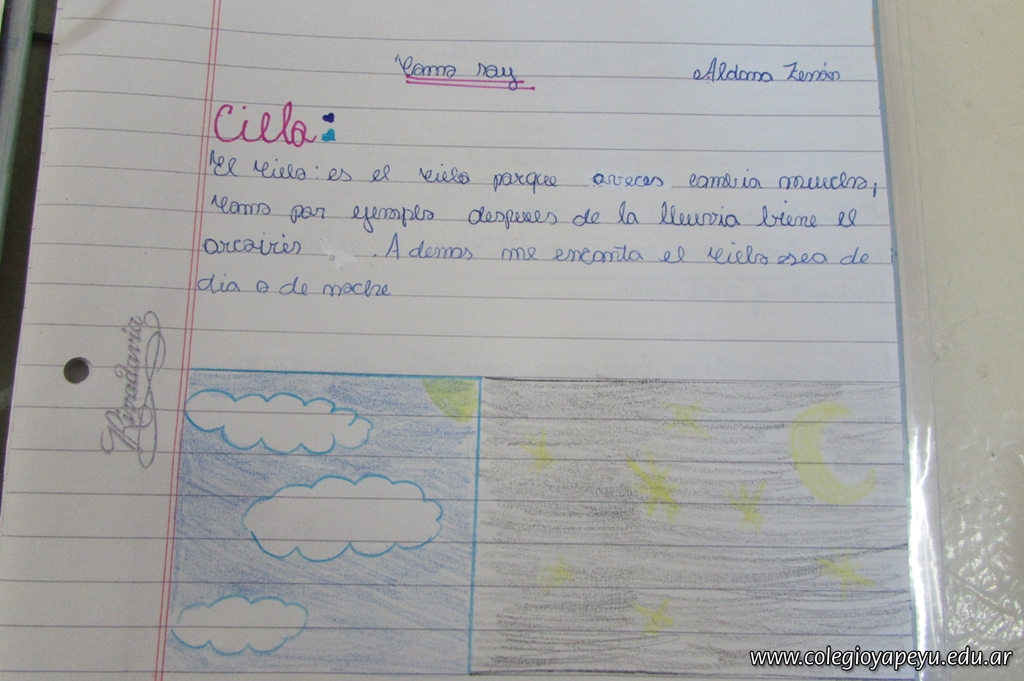 Como soy Aldana Zenón
Cielo:
El cielo: es el cielo porque aveces cambia mucho,
como por ejemplo despues de la lluvia biene el
arcoiris . Ademas me encanta el cielo sea de
dia o de noche
Rivadavia
www.colegioyapeyu.edu.ar